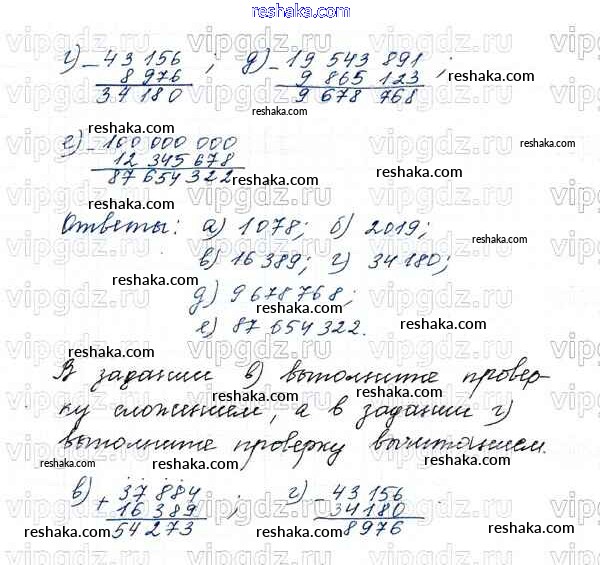 г) - 43 156 ; д) - 19 543 891 ;
8 976 9 865 123
34 180 9 678 768
е) - 100 000 000
12 345 678
87 654 322
Ответы: а) 1078; б) 2019;
в) 16 389; г) 34 180;
д) 9 678 768;
е) 87 654 322.
В задании в) выполните провер-
ку сложением, а в задании г)
выполните проверку вычитанием.
в) + 37 884 ; г) - 43 156
16 389 34 180
54 273 8 976
reshaka.com
vipgdz.ru